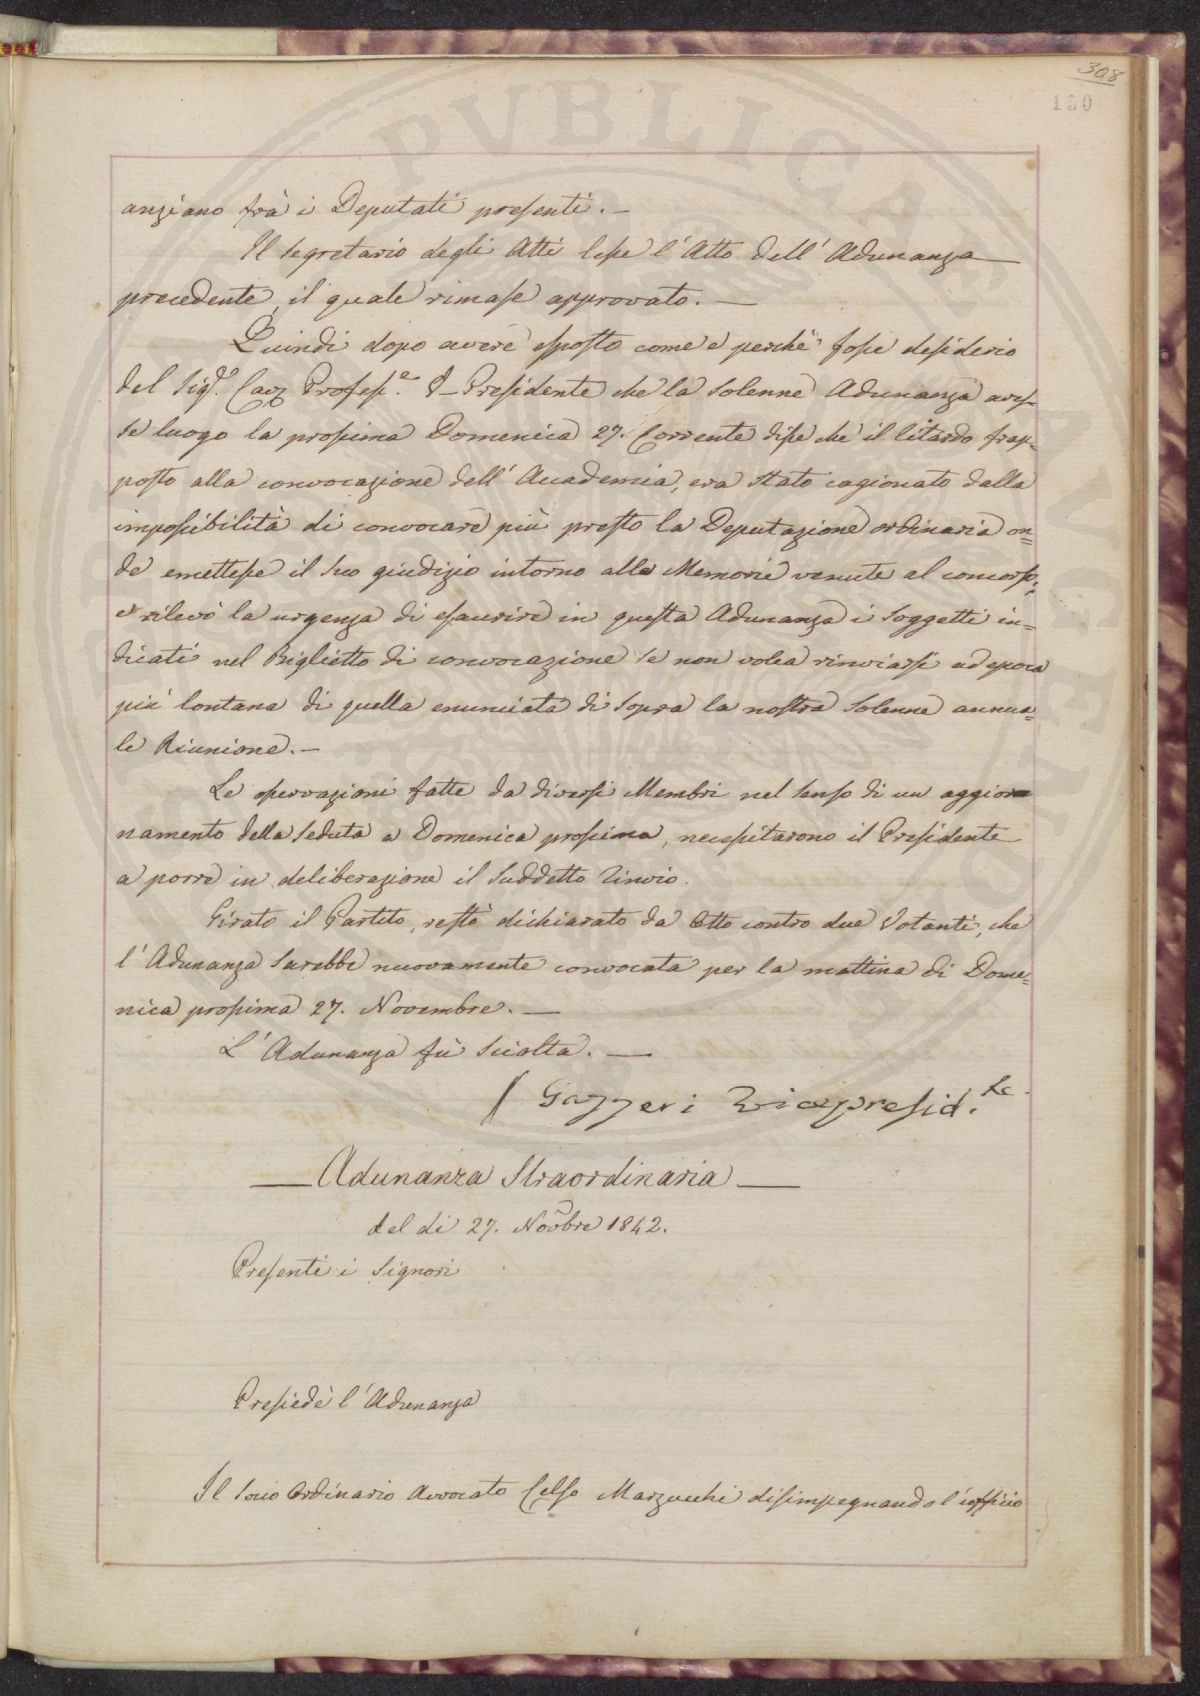 308
150
anziano frà i Deputati presenti. —
Il Segretario degli Atti lesse l'Atto dell'Adunanza
precedente, il quale rimase approvato. —
Quindi dopo avere esposto come e perchè fosse desiderio
del Sig.e Cav. Profess.e I. Presidente che la Solenne Adunanza aves-
se luogo la prossima Domenica 27. Corrente disse che il ritardo frap-
posto alla convocazione dell'Accademia, era stato cagionato dalla
impossibilità di convocare più presto la Deputazione ordinaria on=
de emettesse il suo giudizio intorno alle Memorie venute al concorso;
e rilevò la urgenza di esaurire in questa Adunanza i soggetti in=
dicati nel Biglietto di convocazione se non volea rinviarsi ad epoca
più lontana di quella enunciata di sopra la nostra Solenne annua=
le Riunione. —
Le osservazioni fatte da diversi Membri nel senso di un aggior
namento della Seduta a Domenica prossima, necessitarono il Presidente
a porre in deliberazione il suddetto rinvio.
Girato il Partito, restò dichiarato da Otto contro due Votanti, che
l'Adunanza sarebbe nuovamente convocata per la mattina di Dome=
nica prossima 27. Novembre. —
L'Adunanza fù sciolta. —
Gazzeri Vicepresid.te
— Adunanza Straordinaria —
del dì 27. Novbre 1842.
Presenti i Signori
Presiedè l'Adunanza
Il Socio Ordinario Avvocato Celso Marzucchi disimpegnando l'ufficio
PVBLICAE